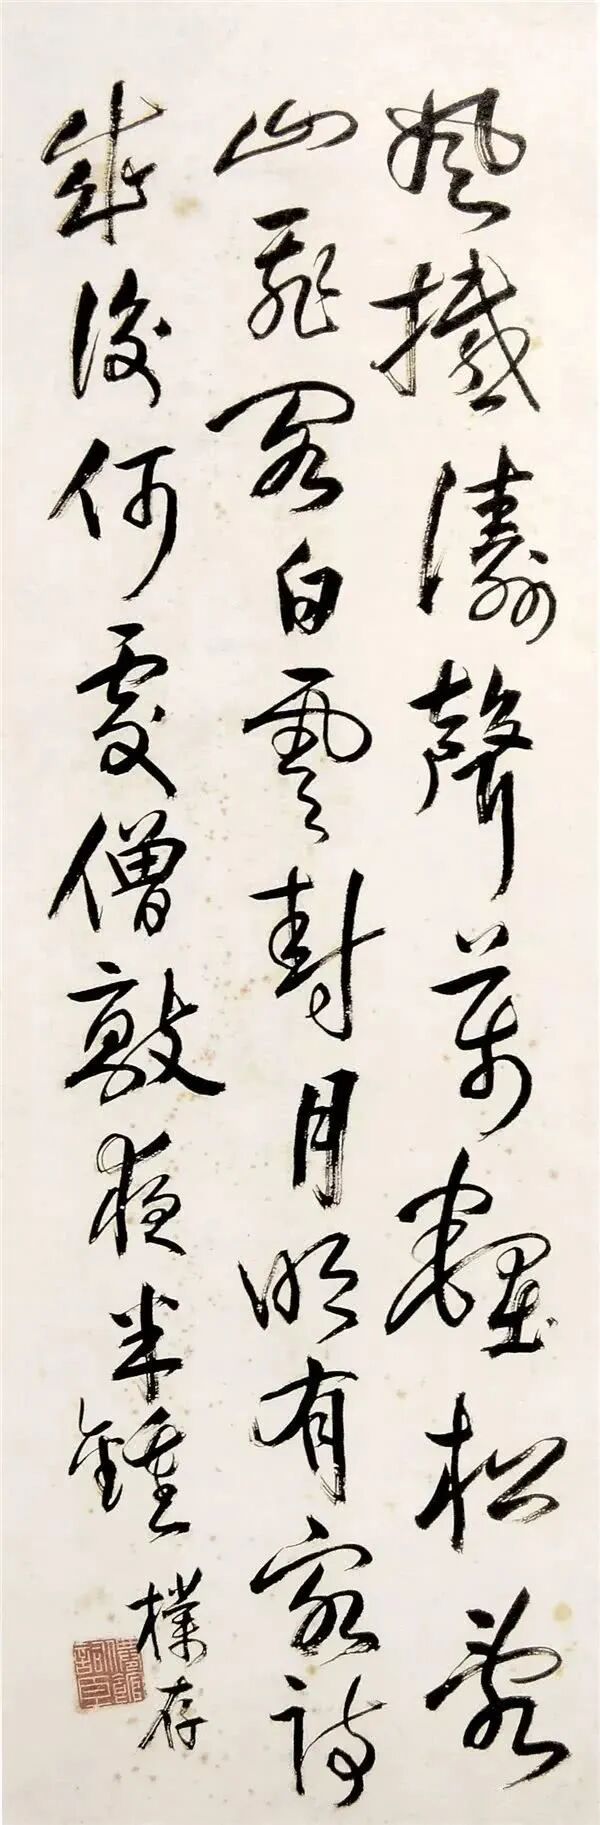 風撼濤聲萬壑松
山飛閣白雲封月明有客詩
成後何處僧敲夜半鍾
樸存